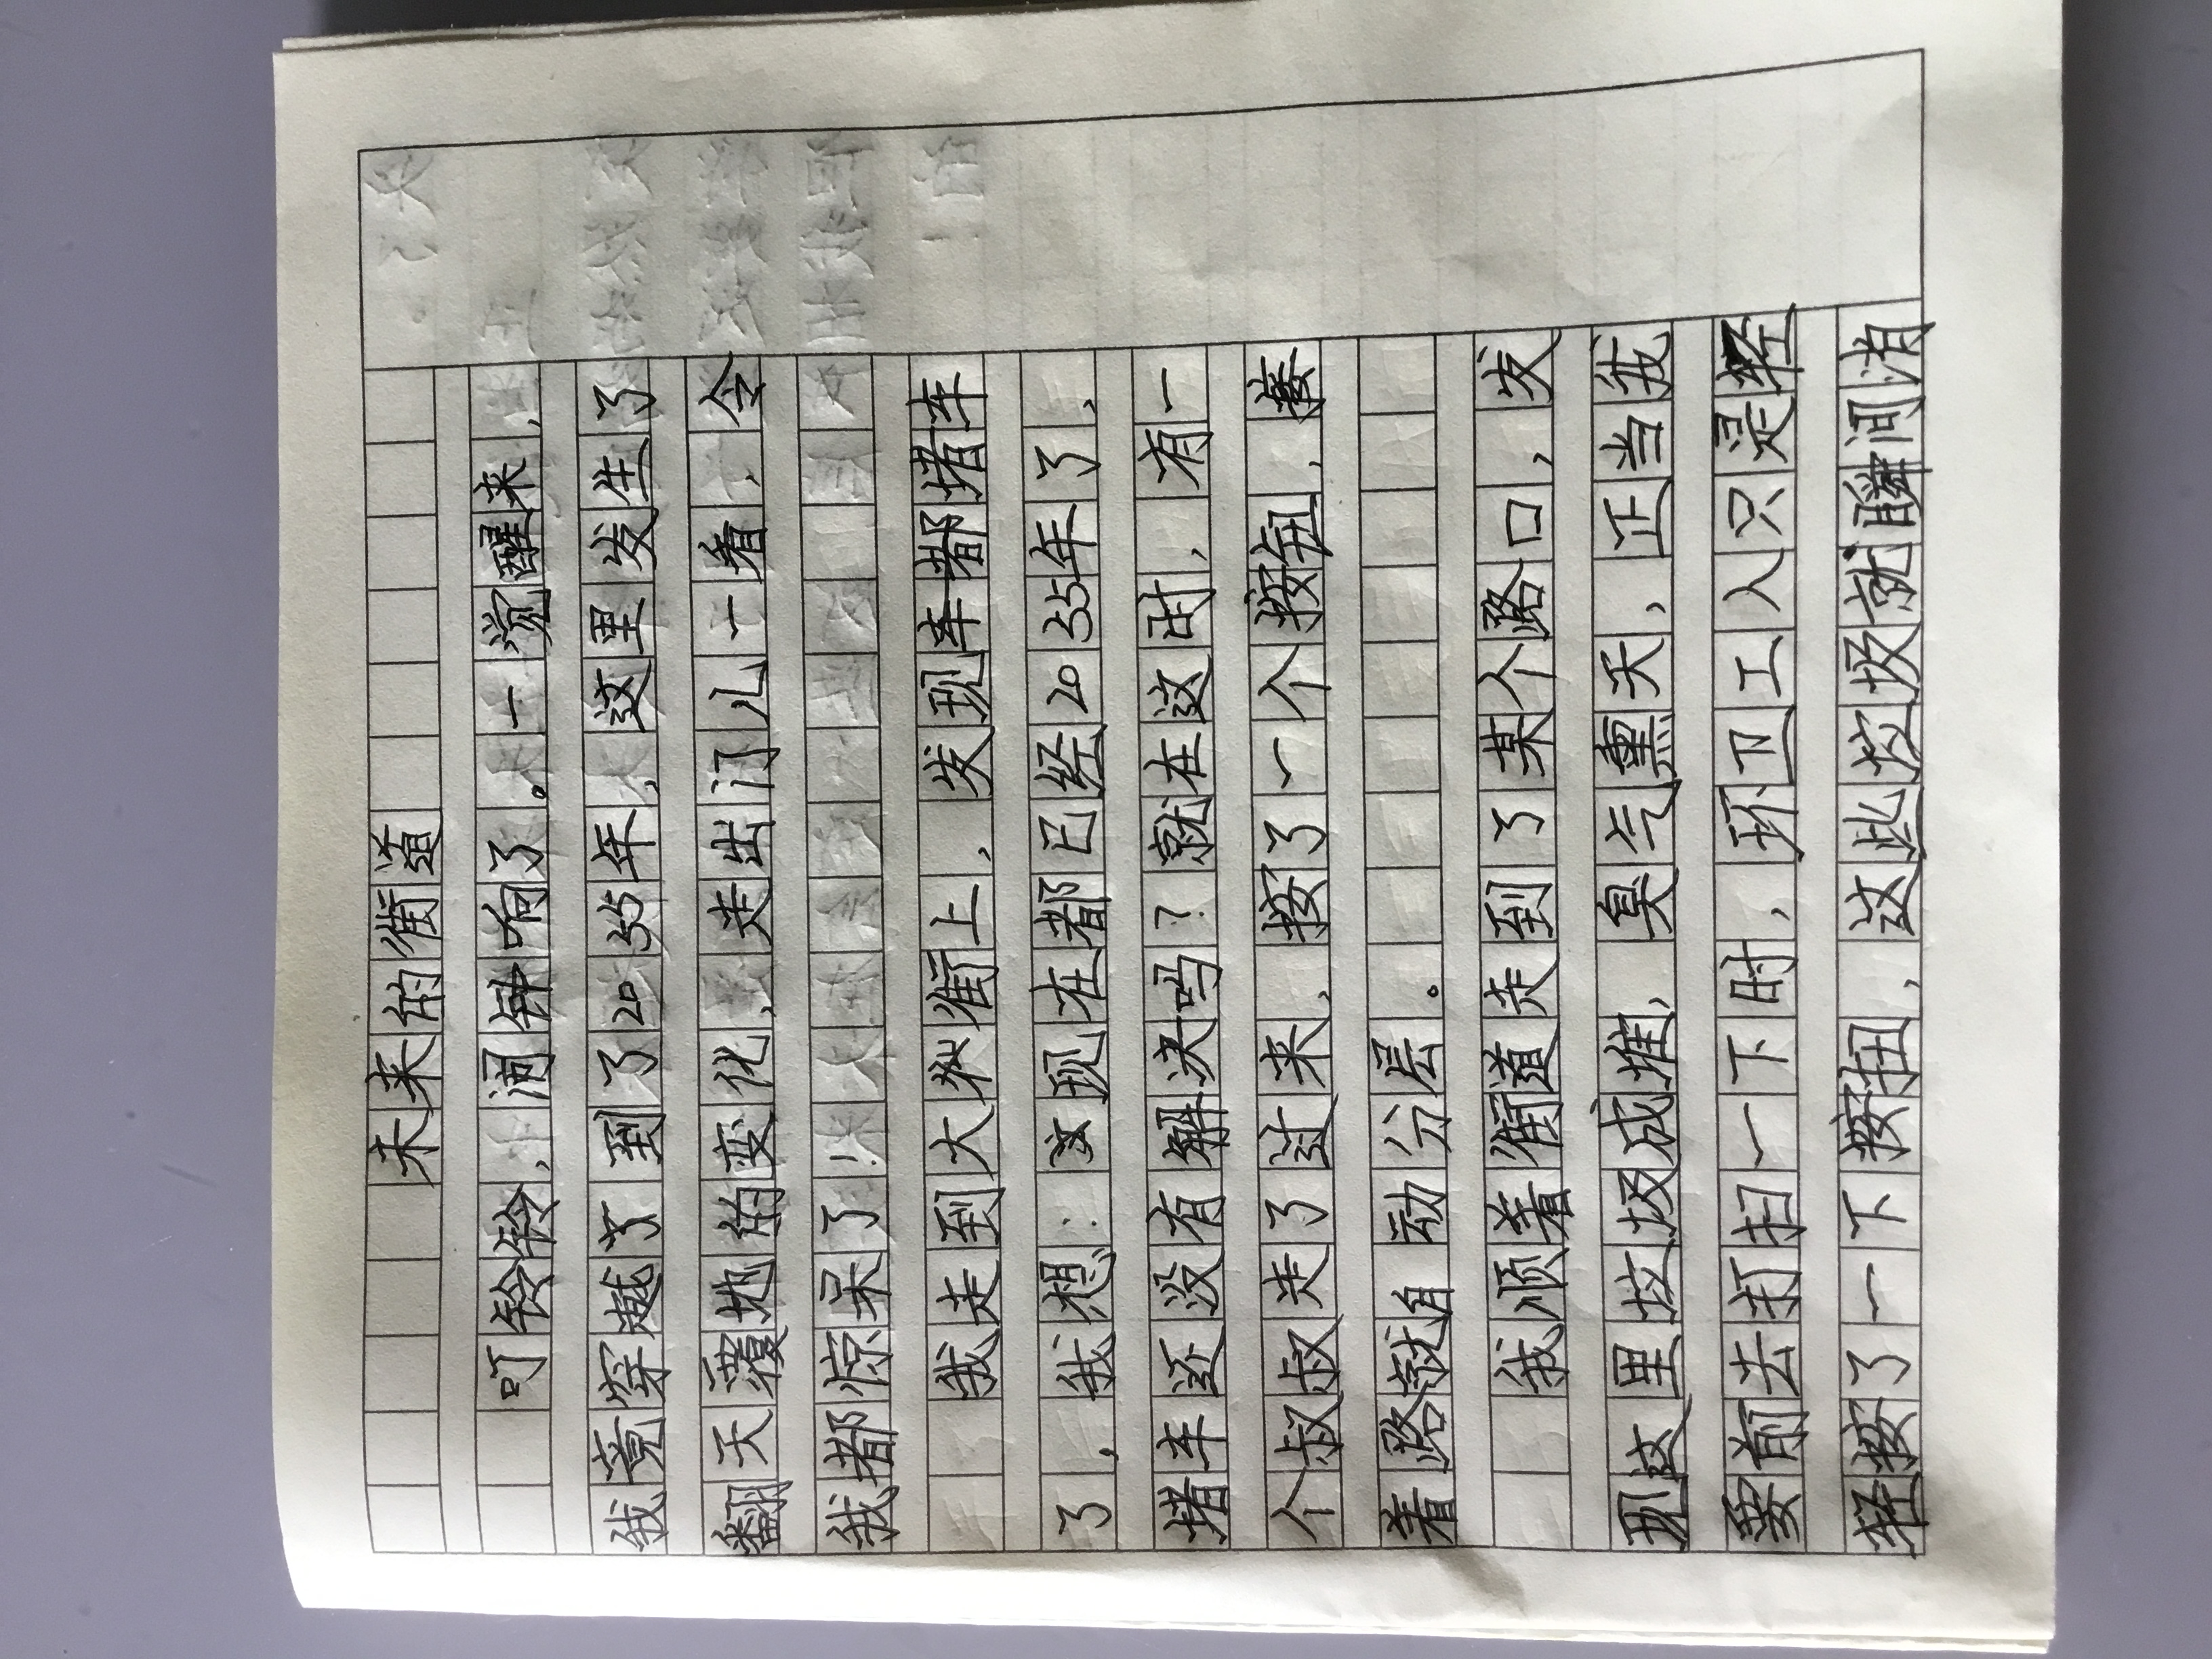 未来的街道
叮铃铃，闹钟响了。一觉醒来，
我竟穿越了到了2055年，这里发生了
翻天覆地的变化，走出门儿一看，令
我都惊呆了！
我走到大街上，发现车都堵车
了，我想：这现在都已经2055年了，
堵车还没有解决吗？就在这时，有一
个叔叔走了过来，按了一个按钮，接
着路就自动分层。
我顺着街道走到了某个路口，发
现这里垃圾成堆，臭气熏天，正当我
要前去打扫一下时，环卫工人只是轻
轻按了一下按扭，这些垃圾就瞬间消